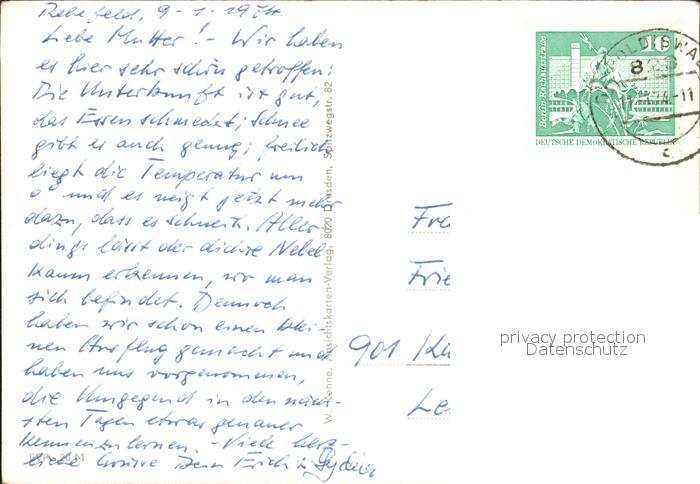 Rehefeld, 9-1-1974.
Liebe Mutter! - Wir haben
es hier sehr schön getroffen:
Die Unterkunft ist gut,
das Essen schmeckt; Schnee
gibt es auch genug; freilich
liegt die Temperatur um
0° und es neigt jetzt mehr
dazu, dass es schneit. Aller-
dings lässt der dichte Nebel
kaum erkennen, wo man
sich befindet. Dennoch
haben wir schon einen klei-
nen Ausflug gemacht und
haben uns vorgenommen,
die Umgegend in den näch-
sten Tagen etwas genauer
kennenzulernen. - Viele herz-
liche Grüsse Dein Erich u.
W. Kenne, Ansichtskarten-Verlag, 8020 Dresden, Spitzwegstr. 82
Berlin-Rathausstraße
10
DEUTSCHE DEMOKRATISCHE REPUBLIK
DIPPOLDISWALDE
Fra
Frie
901 Ka
Le
privacy protection
Datenschutz